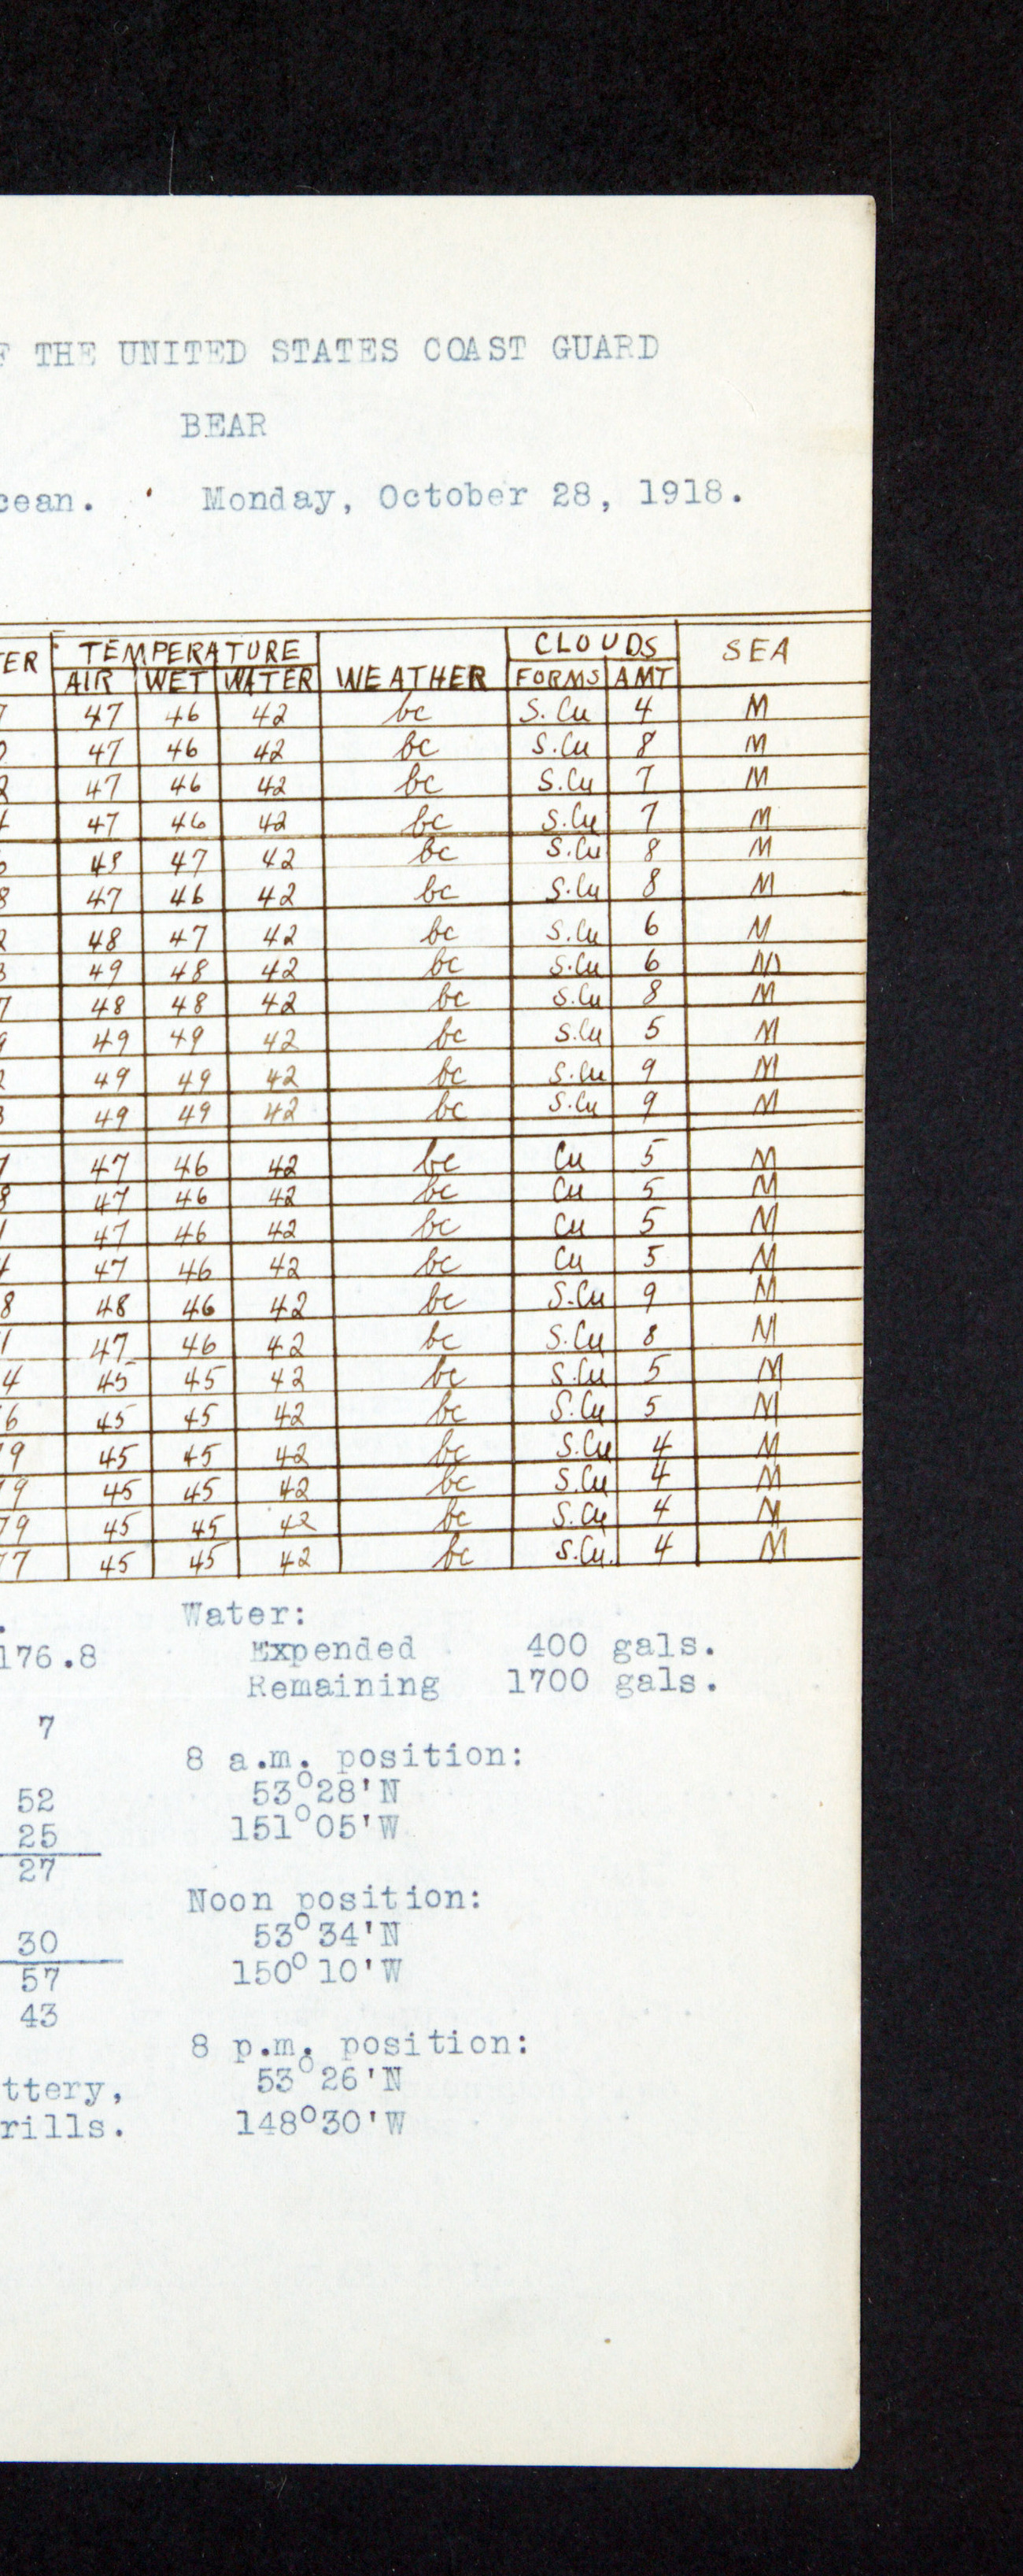 F THE UNITED STATES COAST GUARD
BEAR
cean. Monday, October 28, 1918.
TER TEMPERATURE WEATHER CLOUDS SEA
AIR WET WATER FORMS AMT
7 47 46 42 bc S.Cu 4 M
0 47 46 42 bc S.Cu 8 M
2 47 46 42 bc S.Cu 7 M
4 47 46 42 bc S.Cu 7 M
48 47 42 bc S.Cu 8 M
8 47 46 42 bc S.Cu 8 M
2 48 47 42 bc S.Cu 6 M
3 49 48 42 bc S.Cu 6 M
7 48 48 42 bc S.Cu 8 M
9 49 49 42 bc S.Cu 5 M
2 49 49 42 bc S.Cu 9 M
3 49 49 42 bc S.Cu 9 M
7 47 46 42 bc Cu 5 M
8 47 46 42 bc Cu 5 M
1 47 46 42 bc Cu 5 M
4 47 46 42 bc Cu 5 M
8 48 46 42 bc S.Cu 9 M
1 47 46 42 bc S.Cu 8 M
4 45 45 42 bc S.Cu 5 M
6 45 45 42 bc S.Cu 5 M
9 45 45 42 bc S.Cu 4 M
79 45 45 42 bc S.Cu 4 M
79 45 45 42 bc S.Cu 4 M
77 45 45 42 bc S.Cu. 4 M
. Water:
176.8 Expended 400 gals.
Remaining 1700 gals.
7
8 a.m. position:
52 53°28'N
25 151°05'W
27
Noon position:
30 53°34'N
57 150°10'W
43
8 p.m. position:
ttery, 53°26'N
rills. 148°30'W